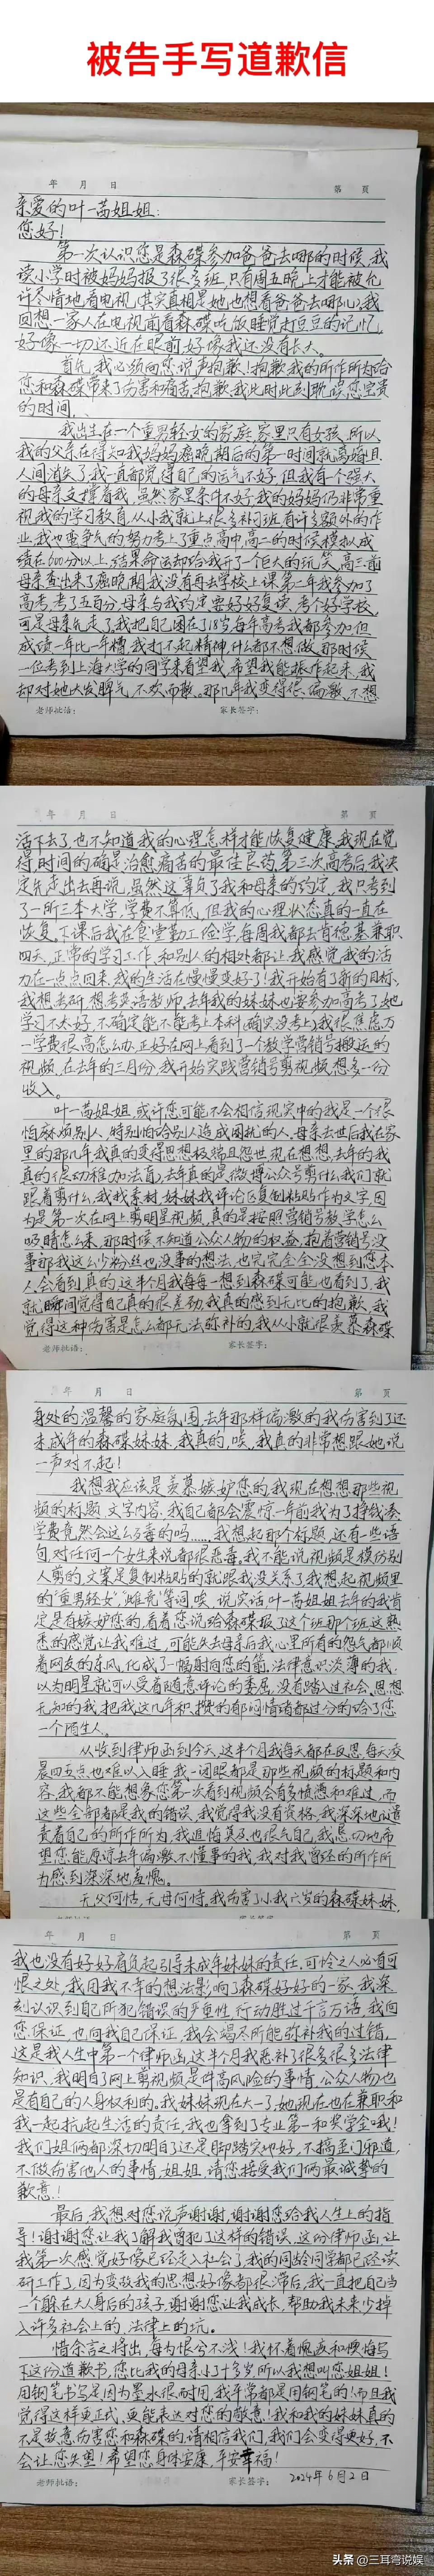 被告手写道歉信
年 月 日 第 页
亲爱的叶一茜姐姐：
您好！
第一次认识您是森碟参加爸爸去哪的时候，我
读小学时被妈妈报了很多班，只有周五晚上才能被允
许尽情地看电视（其实真相是她也想看爸爸去哪儿）我
回想一家人在电视前看森碟吃饭睡觉打豆豆的记忆，
好像一切还近在眼前，好像我还没有长大。
首先，我必须向您说声抱歉！抱歉我的所作所为给
您和森碟带来了伤害和痛苦，抱歉我此时此刻耽误您宝贵
的时间。
我出生在一个重男轻女的家庭，家里只有女孩，所以
我的父亲在得知我妈妈癌晚期后的第一时间就离婚且
人间消失了，我一直都觉得自己的运气不好，但我有一个强大
的母亲支撑着我，虽然家里条件不好，我的妈妈仍非常重
视我的学习教育，从小我就上很多补习班，有许多额外的作
业，我也更争气的努力考上了重点高中，高二的时候模拟成
绩在600分以上，结果命运却给我开了一个巨大的玩笑，高三前
母亲查出来了癌晚期，我没有再去学校上课，第二年我参加了
高考，考了五百分，母亲与我约定要好好复读，考个好学校，
可是母亲先走了，我把自己困在了18岁，每年高考我都参加，但
成绩一年比一年糟，我打不起精神，什么都不想做，那时候
一位考到上海大学的同学来看望我，希望我能振作起来，我
却对她大发脾气，不欢而散。那几年我变得很偏激，不想
老师批语： 家长签字：
年 月 日 第 页
活下去了，也不知道我的心理怎样才能恢复健康。我现在觉
得时间的确是治愈痛苦的最佳良药，第三次高考后，我决
定先走出去再说，虽然这辜负了我和母亲的约定，我只考到
了一所三本大学，学费不算低，但我的心理状态真的一直在
恢复，下课后我在食堂勤工俭学，每周我都去肯德基兼职
四天，正常的学习工作和别人的相处都让我感觉我的活
力在一点点回来，我的生活在慢慢变好了！我开始有了新的目标，
我想考研，想考英语教师，去年我的妹妹也要参加高考了，她
学习不太好，不确定能不能考上本科（确实没考上）我很焦虑万
一学费很高怎么办，正好在网上看到了一个教学营销号搬运的
视频，在去年的三月份，我开始实践营销号剪视频，想多一份
收入。
叶一茜姐姐，或许您可能不会相信现实中的我是一个很
怕麻烦别人，特别怕给别人造成困扰的人。母亲去世后我在家
里的那几年我真的变得思想极端且怨世，现在想想，去年的我
真的很幼稚加法盲，去年真的是微博公众号剪什么我们就
跟着剪什么，我找素材，妹妹找评论区复制粘贴作为文字，因
为是第一次在网上剪明星视频，真的是按照营销号教学怎么
吸睛怎么来，那时候不知道公众人物的权益，抱着营销号没
事那我这么少粉丝也没事的想法，也完完全全没想到您本
人会看到，真的，这半个月我每每一想到森碟可能也看到了，我
就瞬间觉得自己真的很差劲，我真的感到无比的抱歉，我
觉得这种伤害是怎么都无法弥补的，我从小就很羡慕森碟
老师批语： 家长签字：
年 月 日 第 页
身处的温馨的家庭氛围，去年那样偏激的我伤害到了还
未成年的森碟妹妹，我真的，唉，我真的非常想跟她说
一声对不起！
我想我应该是羡慕嫉妒您的，我现在想想那些视
频的标题、文字内容，我自己都会震惊一年前我为了挣钱凑
学费竟然会这么毒的吗……，我想起那个标题，还有一些语
句，对任何一个女生来说都很恶毒。我不能说视频是模仿别
人剪的，文案是复制粘贴的就跟我没关系了，我想起视频里
的“重男轻女”“雌竞”等词，唉，说实话，叶一茜姐姐，去年的我肯
定是有嫉妒您的，看着您说给森碟报了这个班那个班，这熟
悉的感觉让我难过，可能失去母亲后我心里所有的怨气都顺
着网友的东风，化成了一幅射向您的箭，法律意识淡薄的我，
以为明星就可以受着随意评论的委屈，没有踏入过社会、思想
无知的我，把我这几年积攒的郁闷情绪都过分的给了您
一个陌生人。
从收到律师函到今天，这半个月我每天都在反思，每天凌
晨四五点也难以入睡，我一闭眼都是那些视频的标题和内
容，我都不能想象您第一次看到视频会有多愤怒和难过，而
这些全部都是我的错误，我觉得我没有资格，我深深地谴
责着自己的所作所为，我追悔莫及，也很气自己，我恳切地希
望您能原谅去年偏激不懂事的我，我对我曾经的所作所
为感到深深地羞愧。
无父何怙，无母何恃。我伤害了小我六岁的森碟妹妹，
年 月 日 第 页
我也没有好好肩负起引导未成年妹妹的责任，可怜之人必有可
恨之处，我因我不幸的想法影响了森碟好好的一家，我深
刻认识到自己所犯错误的严重性，行动胜过千言万语，我向
您保证，也向我自己保证，我会竭尽所能弥补我的过错，
这是我人生中第一个律师函，这半个月我恶补了很多很多法律
知识，我明白了网上剪视频是件高风险的事情，公众人物也
是有自己的人身权利的。我妹妹现在大一了，她现在也在兼职和
我一起抗起生活的责任，我也拿到了专业第一和奖学金哦！
我们姐俩都深切明白了还是脚踏实地好，不搞歪门邪道，
不做伤害他人的事情，姐姐，请您接受我们俩最诚挚的
歉意！
最后，我想对您说声谢谢，谢谢您给我人生上的指
导！谢谢您让我了解我曾犯了这样的错误，这份律师函，让
我第一次感觉好像已经走入社会了，我的同龄同学都已经读
研工作了，因为变故我的思想好像都很滞后，我一直把自己当
一个躲在大人身后的孩子，谢谢您让我成长，帮助我未来少掉
入许多社会上的、法律上的坑。
惜余言之将出，每为恨兮不浅！我怀着愧疚和懊悔写
下这份道歉书，您比我的母亲小了十多岁，所以我想叫您姐姐！
用钢笔书写是因为墨水很耐用，我平常都是用钢笔的！而且我
觉得这样更正式，更能表达对您的敬意！我和我的妹妹真的
不是故意伤害您和森碟的，请相信我们，我们会变得更好，不
会让您失望！希望您身体安康，平安幸福！
老师批语： 家长签字： 2024年6月2日
头条 @三耳弯说娱